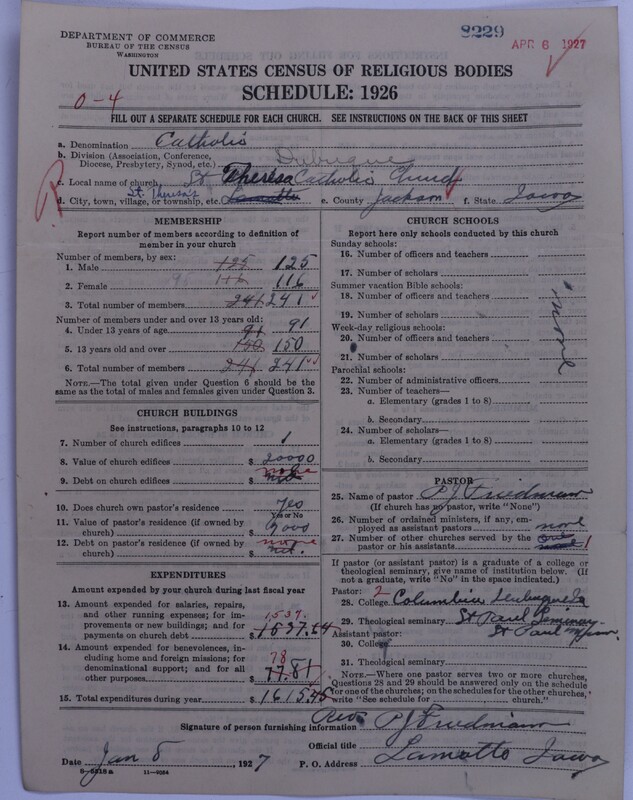 8229
APR 8 1927
DEPARTMENT OF COMMERCE
BUREAU OF THE CENSUS
WASHINGTON
UNITED STATES CENSUS OF RELIGIOUS BODIES
SCHEDULE: 1926
0-4
FILL OUT A SEPARATE SCHEDULE FOR EACH CHURCH. SEE INSTRUCTIONS ON THE BACK OF THIS SHEET
a. Denomination Catholic
b. Division (Association, Conference, Diocese, Presbytery, Synod, etc.) Dubuque
c. Local name of church St Theresa Catholic Church
St. Theresa
d. City, town, village, or township, etc. Lamotte e. County Jackson f. State Iowa
MEMBERSHIP
Report number of members according to definition of member in your church
Number of members, by sex:
1. Male 125 125
2. Female 116 116
3. Total number of members 241 241
Number of members under and over 13 years old:
4. Under 13 years of age 91 91
5. 13 years old and over 150 150
6. Total number of members 241 241
NOTE.—The total given under Question 6 should be the same as the total of males and females given under Question 3.
CHURCH BUILDINGS
See instructions, paragraphs 10 to 12
7. Number of church edifices 1
8. Value of church edifices $ 20000
9. Debt on church edifices $ none
10. Does church own pastor's residence? Yes
Yes or No
11. Value of pastor's residence (if owned by church) $ 9000
12. Debt on pastor's residence (if owned by church) $ none
EXPENDITURES
Amount expended by your church during last fiscal year
13. Amount expended for salaries, repairs, and other running expenses; for improvements or new buildings; and for payments on church debt $ 1537. 1537.64
14. Amount expended for benevolences, including home and foreign missions; for denominational support; and for all other purposes $ 78 77.81
15. Total expenditures during year $ 1615.45
CHURCH SCHOOLS
Report here only schools conducted by this church
Sunday schools:
16. Number of officers and teachers
17. Number of scholars
Summer vacation Bible schools:
18. Number of officers and teachers
19. Number of scholars
none
Week-day religious schools:
20. Number of officers and teachers
21. Number of scholars
Parochial schools:
22. Number of administrative officers
23. Number of teachers—
a. Elementary (grades 1 to 8)
b. Secondary
24. Number of scholars—
a. Elementary (grades 1 to 8)
b. Secondary
PASTOR
25. Name of pastor P J Friedmann
(If church has no pastor, write "None")
26. Number of ordained ministers, if any, employed as assistant pastor none
27. Number of other churches served by the pastor or his assistants 1
If pastor (or assistant pastor) is a graduate of a college or theological seminary, give name of institution below. (If not a graduate, write "No" in the space indicated.)
Pastor: 2
28. College Columbia Dubuque Ia
29. Theological seminary St Paul Seminary
Assistant pastor: St Paul Minn.
30. College
31. Theological seminary
NOTE.—Where one pastor serves two or more churches, Questions 28 and 29 should be answered only on the schedule for one of the churches; on the schedules for the other churches, write "See schedule for church."
Signature of person furnishing information Rev P J Friedmann
Official title
Date Jan 8 1927 P. O. Address Lamotte Iowa
8-5218a 11—9034